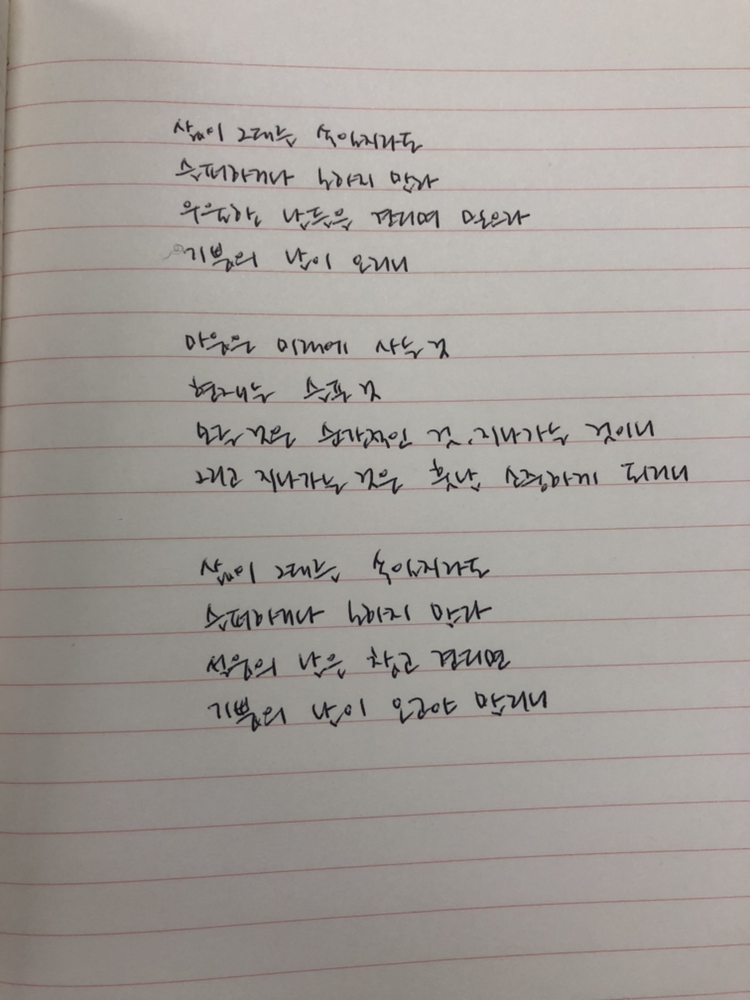 삶이 그대를 속일지라도
슬퍼하거나 노하지 말라
우울한 날들을 견디며 믿으라
기쁨의 날이 오리니
마음은 미래에 사는 것
현재는 슬픈 것
모든 것은 순간적인 것, 지나가는 것이니
그리고 지나가는 것은 훗날 소중하게 되리니
삶이 그대를 속일지라도
슬퍼하거나 노하지 말라
설움의 날은 참고 견디면
기쁨의 날이 오고야 말리니